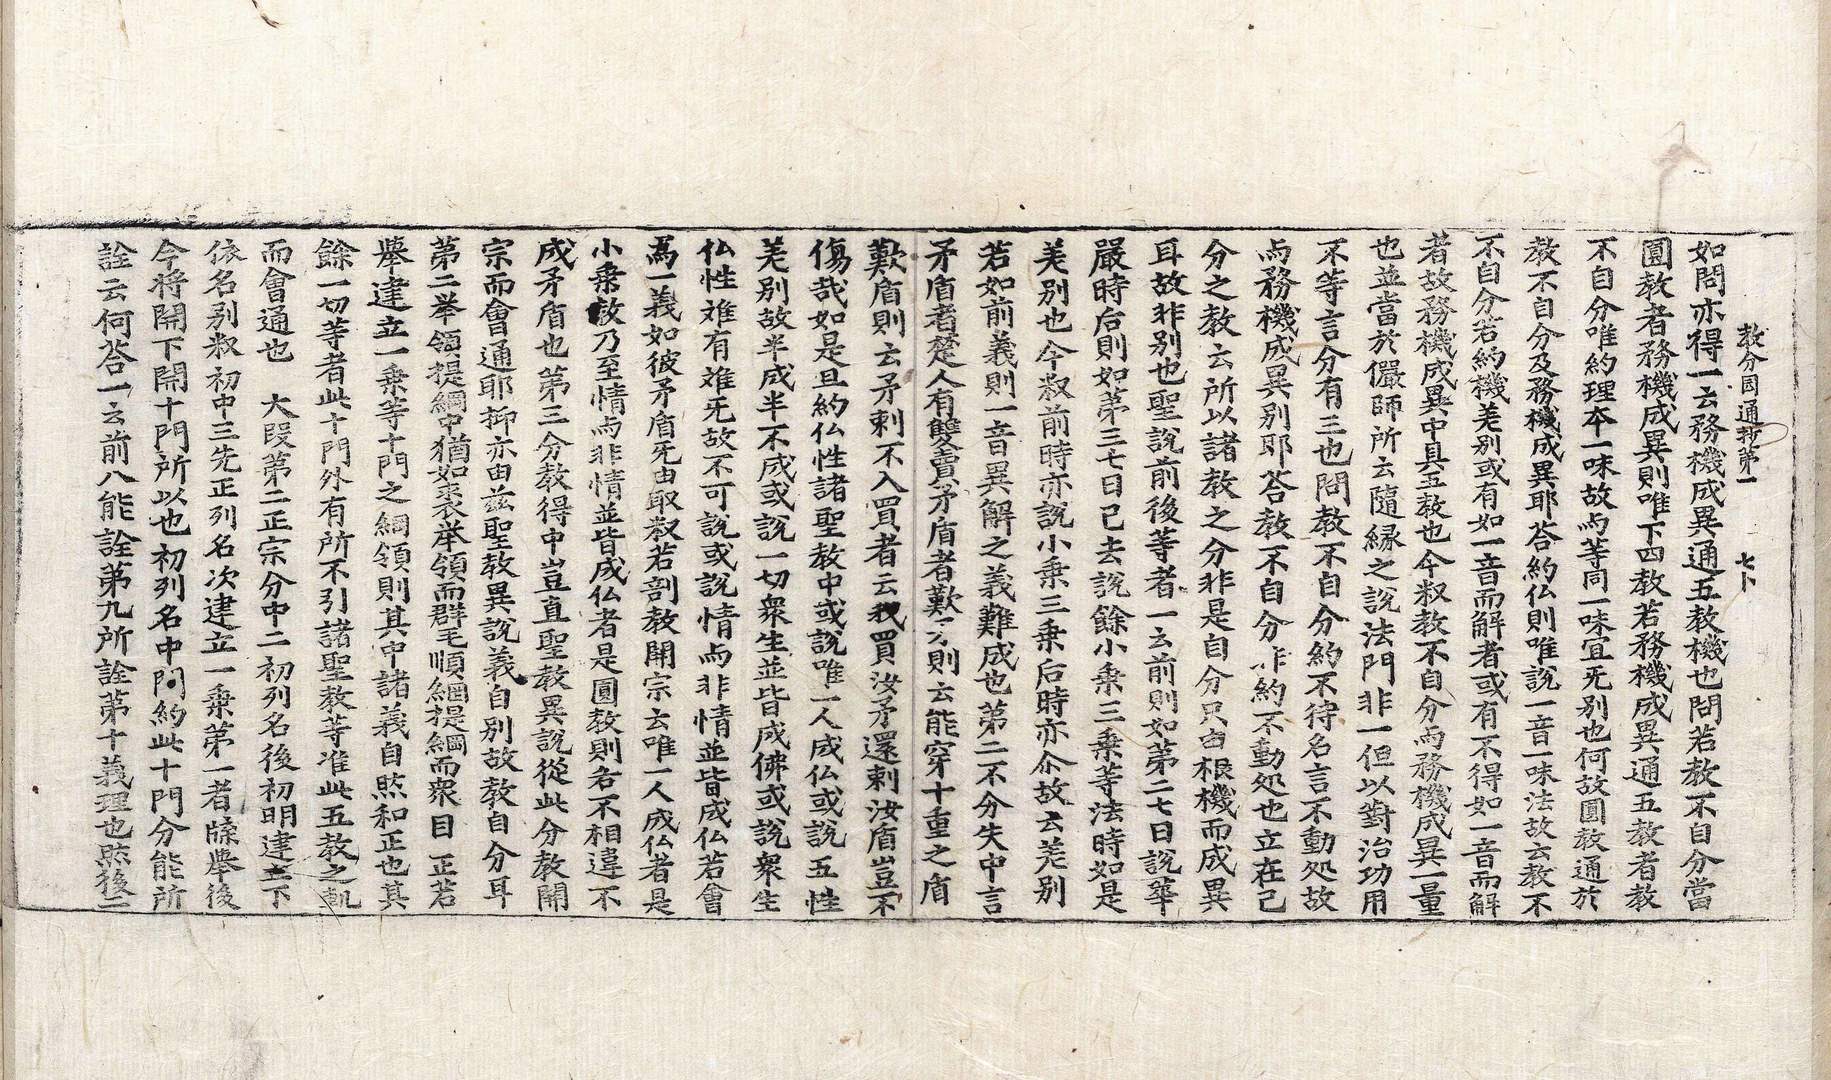 教分円通抄第一　七卜
如問亦得一云務機成異通五教機也問若教不自分當
圓教者務機成異則唯下四教若務機成異通五教者教
不自分唯約理本一味故与等同一味宜旡别也何故圓教通於
教不自分及務機成異耶荅約仏則唯說一音一味法故云教不
不自分若約機差别或有如一音而解者或有不得如一音而解
者故務機成異中具五教也今叙教不自分而務機成異一量
也並當於儼師所云隨縁之說法門非一但以對治功用
不等言分有三也問教不自分約不待名言不動处故
与務機成異别耶荅教不自分非約不動処也立在己
分之教云所以諸教之分非是自分只由根機而成異
耳故非别也聖說前後等者一云前則如第二七日說華
嚴時后則如第三七日已去說餘小乗三乗等法時如是
差别也今叙前時亦說小乗三乗后時亦尒故云差别
若如前義則一音異解之義難成也第二不分失中言
矛盾者楚人有雙賣矛盾者歎矛則云能穿十重之盾
歎盾則云矛刺不入買者云我買汝矛還刺汝盾豈不
傷哉如是且約仏性諸聖教中或說唯一人成仏或說五性
差别故半成半不成或說一切衆生並皆成佛或說衆生
仏性难有难旡故不可說或說情与非情並皆成仏若會
為一義如彼矛盾旡由取叙若剖教開宗云唯一人成仏者是
小乗教乃至情与非情並皆成仏者是圓教則各不相違不
成矛盾也第三分教得中豈直聖教異說從此分教開
宗而會通耶抑亦由兹聖教異說義自别故教自分耳
第二举領提綱中猶如裘衣举領而群毛順綱提綱而衆目正若
舉建立一乗等十門之綱領則其中諸義自然和正也其
餘一切等者此十門外有所不引諸聖教等准此五教之軌
而會通也　大段第二正宗分中二初列名後初明建立下
依名别叙初中三先正列名次建立一乗第一者牒舉後
今將開下開十門所以也初列名中問約此十門分能所
詮云何荅一云前八能詮第九所詮第十義理也然後二